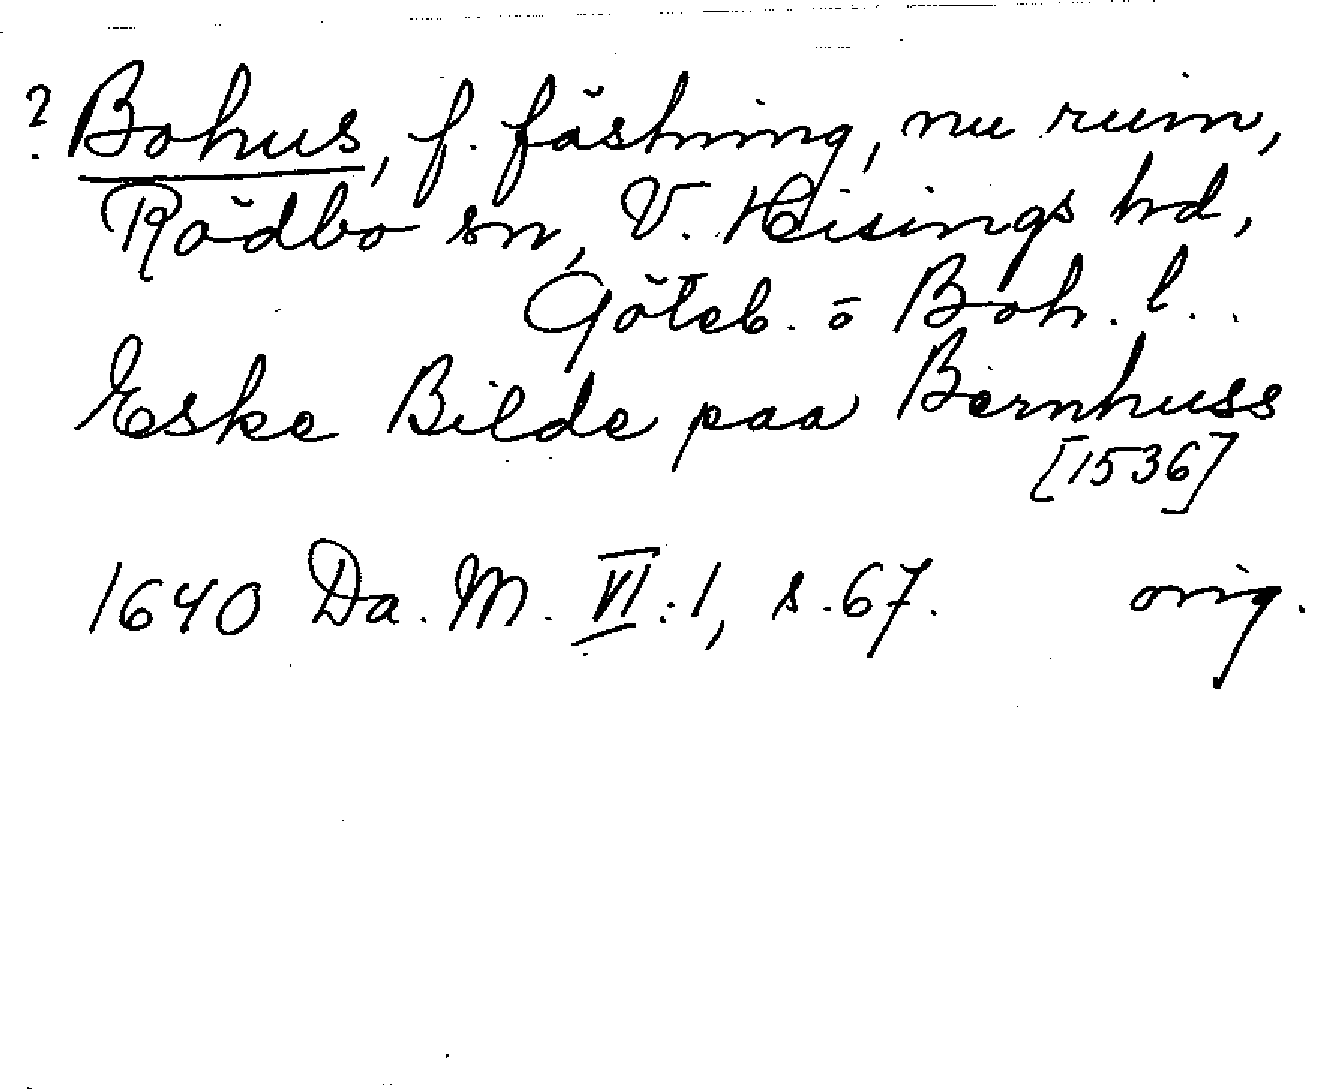 ? Bohus, f. fästning, nu ruin,
Rödbo sn, V. Hisings hd,
Göteb. o Boh. l.
Eske Bilde paa Bernhuss
[1536]
1640 Da. M. VI:1, s. 67. orig.